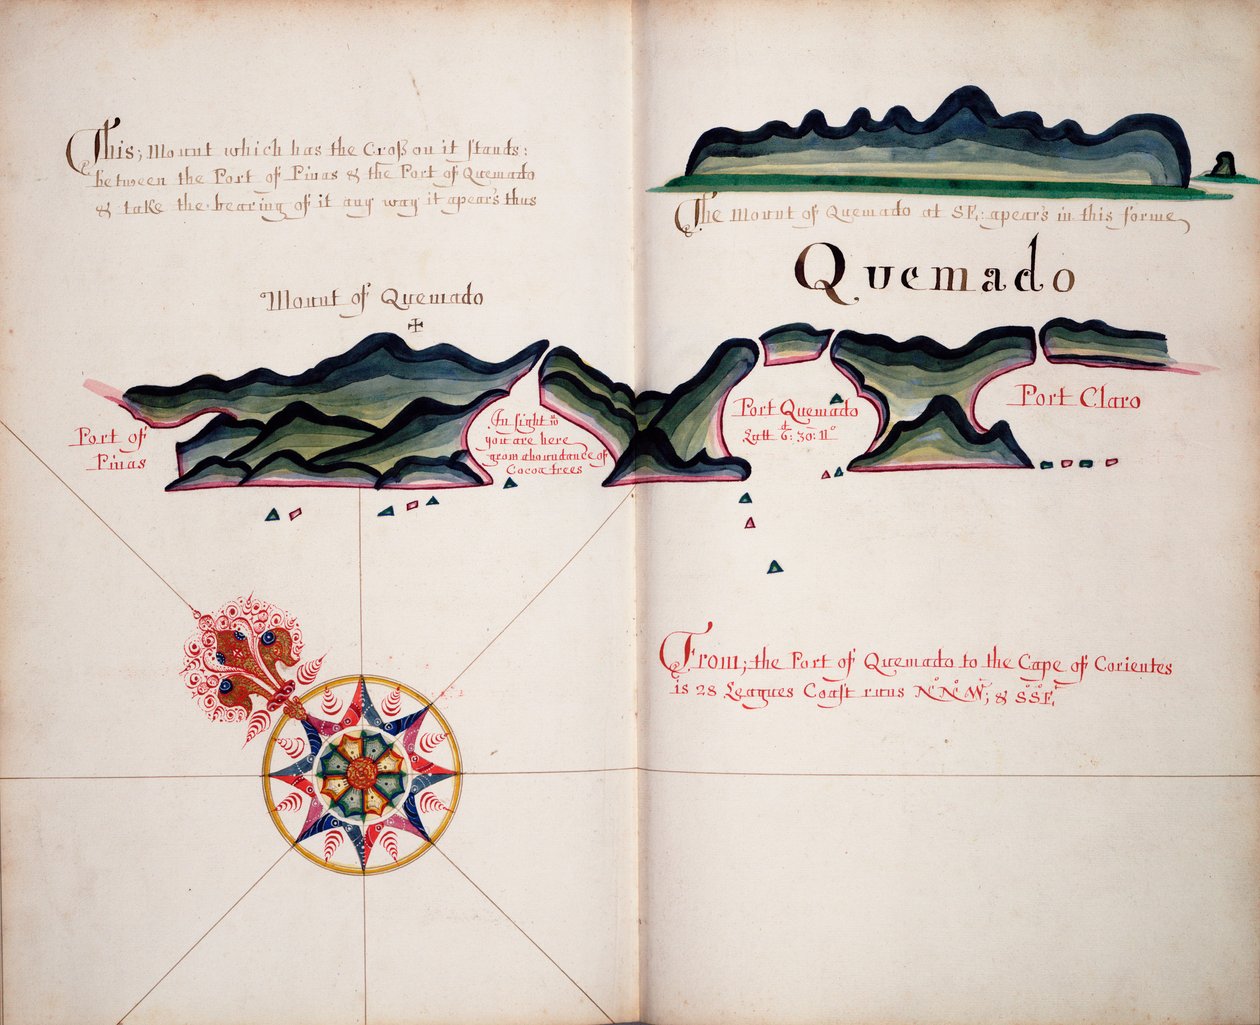 This; Mount which has the Croſs on it ſtands:
between the Port of Pinas & the Port of Quemado
& take the bearing of it any way it apears thus
The Mount of Quemado at SE: apears in this forme
Quemado
Mount of Quemado
Port of
Pinas
In ſight
you are here
grow aboundance of
Cocoa trees
Port Quemado
Latt 6: 30: N
Port Claro
From; the Port of Quemado to the Cape of Corientes
is 28 Leagues Coaſt runs N.N.W; & S.S.E